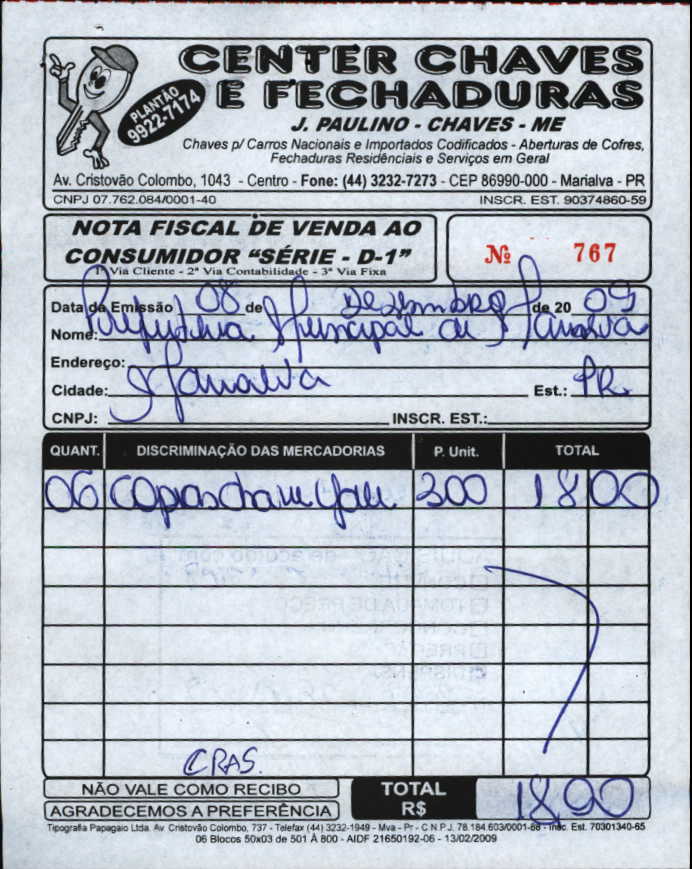 CENTER CHAVES
E FECHADURAS
PLANTÃO
9922-7174
J. PAULINO - CHAVES - ME
Chaves p/ Carros Nacionais e Importados Codificados - Aberturas de Cofres,
Fechaduras Residênciais e Serviços em Geral
Av. Cristovão Colombo, 1043 - Centro - Fone: (44) 3232-7273 - CEP 86990-000 - Marialva - PR
CNPJ 07.762.084/0001-40 INSCR. EST. 90374860-59
NOTA FISCAL DE VENDA AO
CONSUMIDOR "SÉRIE - D-1"
1ª Via Cliente - 2ª Via Contabilidade - 3ª Via Fixa
Nº 767
Data da Emissão 08 de Dezembro de 20 09
Nome: Prefeitura Municipal de Marialva
Endereço:
Cidade: Marialva Est.: PR.
CNPJ: INSCR. EST.:
QUANT. DISCRIMINAÇÃO DAS MERCADORIAS P. Unit. TOTAL
06 copas chave 300 18 00
CRAS.
NÃO VALE COMO RECIBO
AGRADECEMOS A PREFERÊNCIA
TOTAL
R$
18,00
Tipografia Papagaio Ltda. Av. Cristovão Colombo, 737 - Telefax (44) 3232-1949 - Mva - Pr - C.N.P.J. 78.184.603/0001-88 - Insc. Est. 70301340-65
06 Blocos 50x03 de 501 À 800 - AIDF 21650192-06 - 13/02/2009